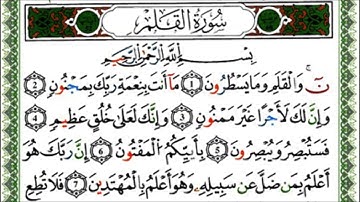 سُورَةُ القَلَمِ
بِسْمِ اللَّهِ الرَّحْمَٰنِ الرَّحِيمِ
نٓ ۚ وَالْقَلَمِ وَمَا يَسْطُرُونَ ۝١ مَآ أَنتَ بِنِعْمَةِ رَبِّكَ بِمَجْنُونٍ ۝٢
وَإِنَّ لَكَ لَأَجْرًا غَيْرَ مَمْنُونٍ ۝٣ وَإِنَّكَ لَعَلَىٰ خُلُقٍ عَظِيمٍ ۝٤
فَسَتُبْصِرُ وَيُبْصِرُونَ ۝٥ بِأَييِّكُمُ الْمَفْتُونُ ۝٦ إِنَّ رَبَّكَ هُوَ
أَعْلَمُ بِمَن ضَلَّ عَن سَبِيلِهِۦ وَهُوَ أَعْلَمُ بِالْمُهْتَدِينَ ۝٧ فَلَا تُطِعِ